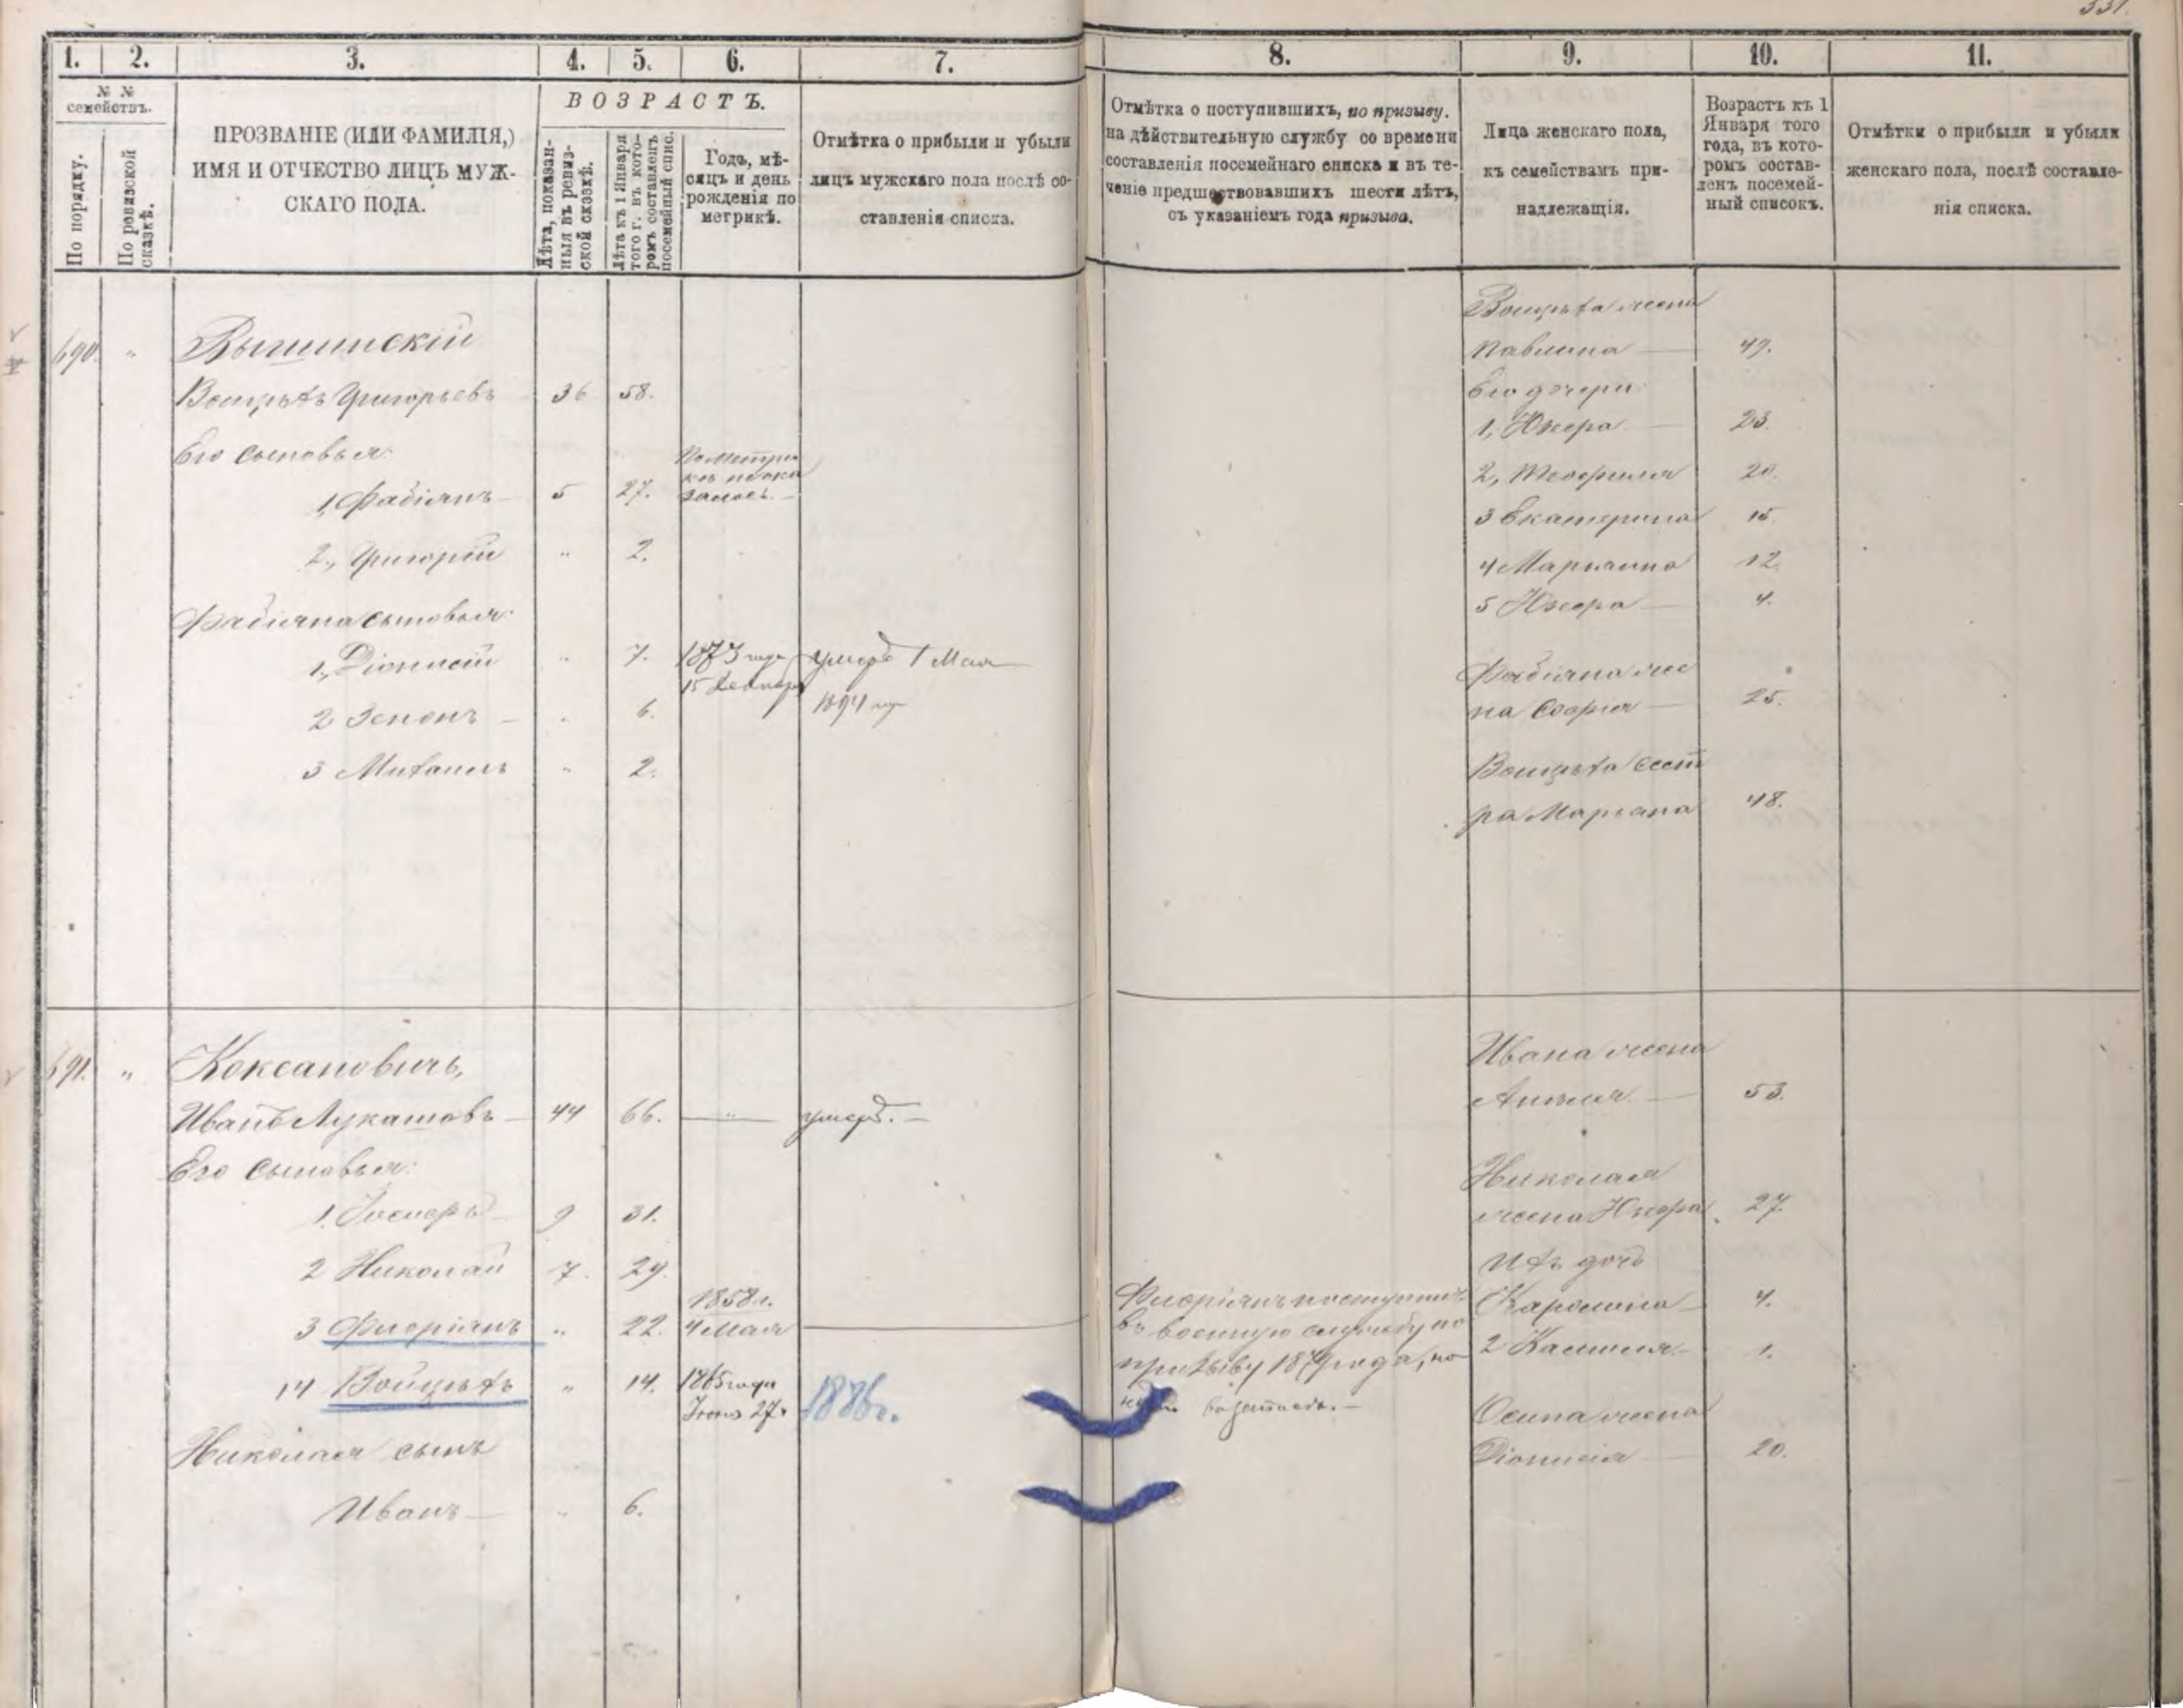 331.
1.
2.
3.
4.
5.
6.
7.
8.
9.
10.
11.
№ №
семействъ.
По порядку.
По ревизской
сказкѣ.
ПРОЗВАНІЕ (ИЛИ ФАМИЛІЯ,)
ИМЯ И ОТЧЕСТВО ЛИЦЪ МУЖ-
СКАГО ПОЛА.
ВОЗРАСТЪ.
Лѣта, показан-
ныя въ ревиз-
ской сказкѣ.
Лѣта къ 1 Января
того г. въ кото-
ромъ составленъ
посемейный спис.
Годъ, мѣ-
сяцъ и день
рожденія по
метрикѣ.
Отмѣтка о прибыли и убыли
лицъ мужскаго пола послѣ со-
ставленія списка.
Отмѣтка о поступившихъ, по призыву.
на дѣйствительную службу со времени
составленія посемейнаго списка и въ те-
ченіе предшествовавшихъ шести лѣтъ,
съ указаніемъ года призыва.
Лица женскаго пола,
къ семействамъ при-
надлежащія.
Возрастъ къ 1
Января того
года, въ кото-
ромъ состав-
ленъ посемей-
ный списокъ.
Отмѣтки о прибыли и убыли
женскаго пола, послѣ составле-
нія списка.
690. " Вышинскій
Войцѣхъ Григорьевъ 36 58.
Его сыновья:
1, Фабіянъ 5 27. По метри
кѣ не ока
залось.
2, Григорій " 2.
Фабіяна сыновья:
1, Діонисій " 7. 1873 года умеръ 1 Мая
15 Декабря 1894 году
2 Зенонъ " 6.
3 Михаилъ " 2.
Войцѣха жена
Павлина 49.
Его дочери:
1, Юзефа 23.
2, Теофиля 20.
3 Екатерина 15.
4 Марьанна 12.
5 Юзефа 4.
Фабіяна же
на Софія 25.
Войцѣха сест
ра Марьана 48.
691. " Коксановичъ,
Иванъ Лукашовъ 44 66. " умеръ.
Его сыновья:
1. Іосифъ 9 31.
2 Николай 7. 29.
3 Флоріянъ " 22. 1858 г.
4 Мая
14 Войцѣхъ " 14. 1865 года
27 1886 г.
Николая сынъ
Иванъ " 6.
Флоріянъ поступилъ
въ военную службу по
призыву 1879 года,
Ивана жена
Анеля 53.
Николая
жена Юзефа 27.
Ихъ дочь
Каролина 4.
2 Камиля 1.
Осипа жена
Діонисія 20.